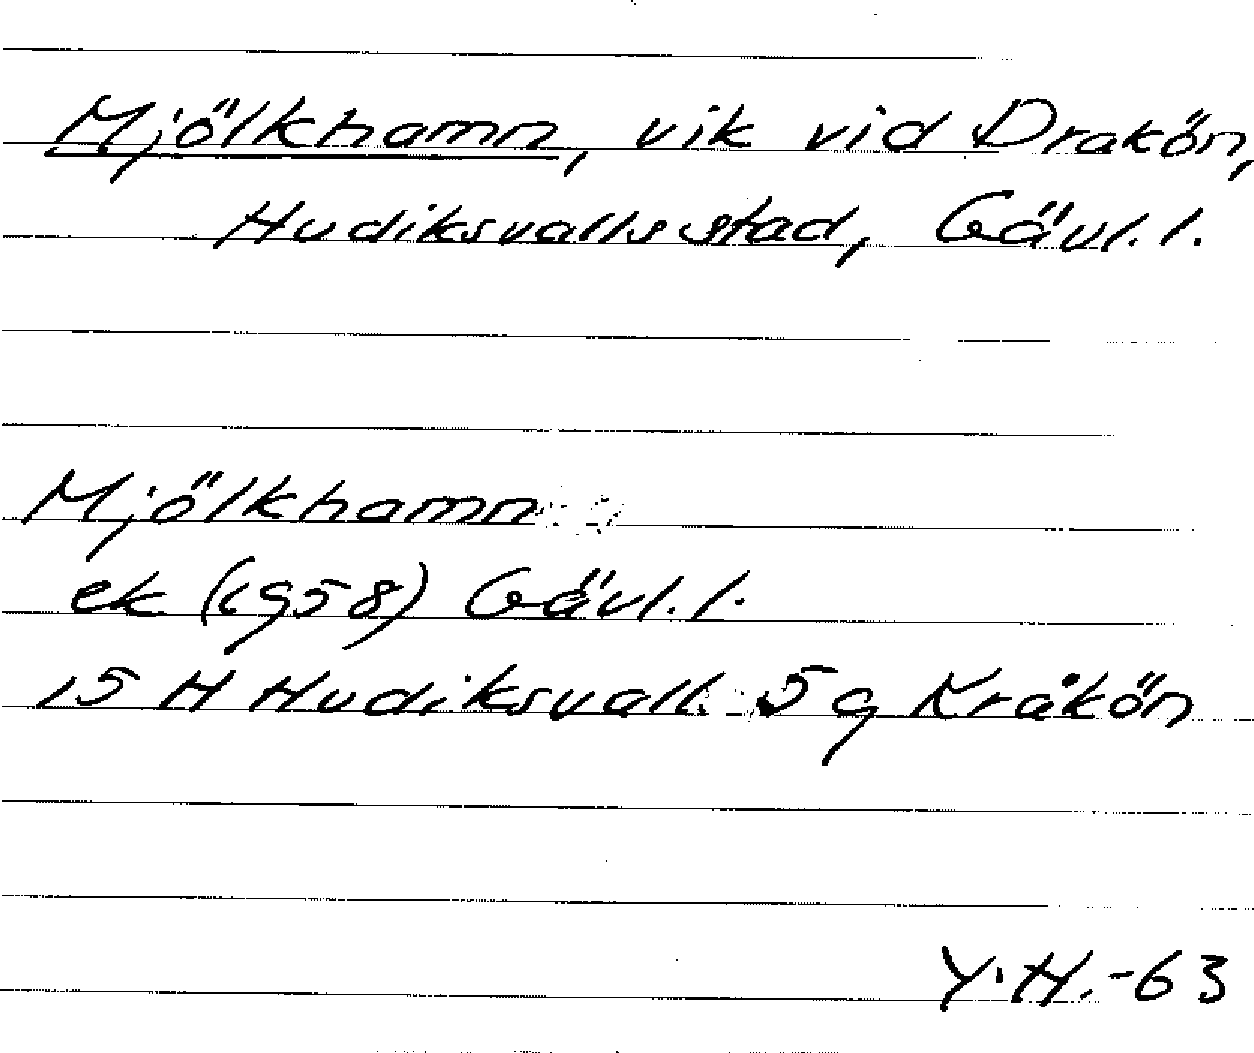 Mjölkhamn, vik vid Drakön,
Hudiksvalls stad, Gävl. l.
Mjölkhamn
ek (1958) Gävl. l.
15 H Hudiksvall 5 g Kråkön
Y. H. -63